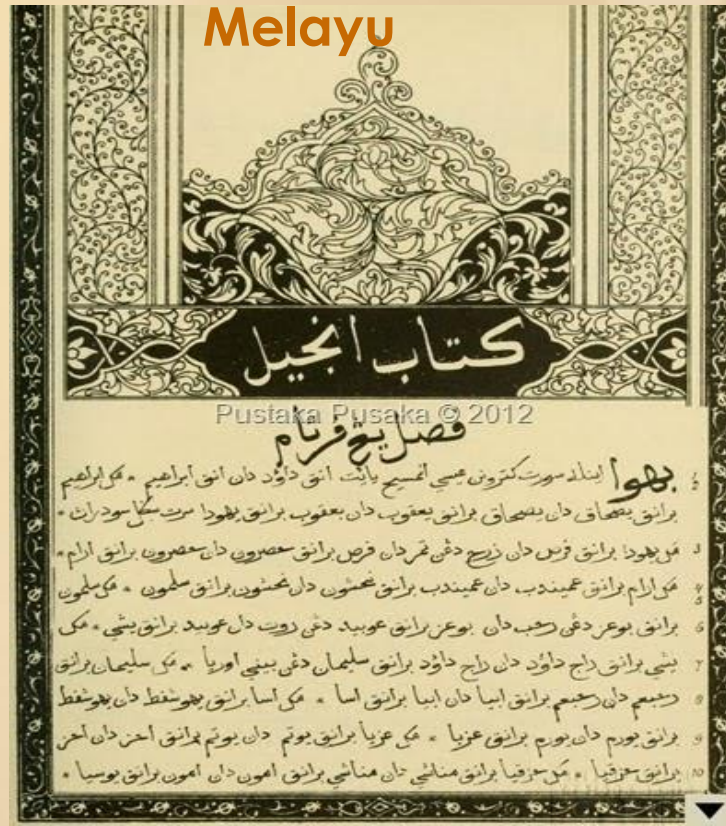 Melayu
كتاب انجيل
Pustaka Pusaka © 2012
فصل يڠ فرتام
1 2 بهوا اينله سورت كتورونن عيسى المسيح يائيت انق داؤد دان انق ابراهيم * مك ابراهيم
برانق يصحاق دان يصحاق برانق يعقوب دان يعقوب برانق يهودا سرت سڬل سودراڽ *
3 مك يهودا برانق فرص دان زرح دڠن تمر دان فرص برانق حصرون دان حصرون برانق ارام *
4 5 مك ارام برانق عميندب دان عميندب برانق نحشون دان نحشون برانق سلمون * مك سلمون
6 برانق بوعز دڠن رحب دان بوعز برانق عوبيد دڠن روت دان عوبيد برانق يشي * مك
7 يشي برانق راج داؤد دان راج داؤد برانق سليمان دڠن بيني اوريا * مك سليمان برانق
8 رحبعم دان رحبعم برانق ابيا دان ابيا برانق اسا * مك اسا برانق يهوشفط دان يهوشفط
9 برانق يورم دان يورم برانق عزيا * مك عزيا برانق يوتم دان يوتم برانق احز دان احز
10 برانق حزقيا * مك حزقيا برانق مناشي دان مناشي برانق امون دان امون برانق يوسيا *